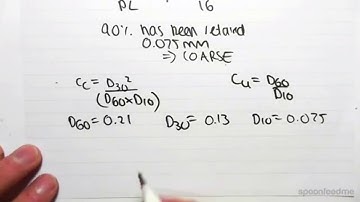 PL 16
90% has been retained
0.075mm
⇒ COARSE
Cc = D30² / (D60 × D10) Cu = D60 / D10
D60 = 0.21 D30 = 0.13 D10 = 0.075
spoonfeedme